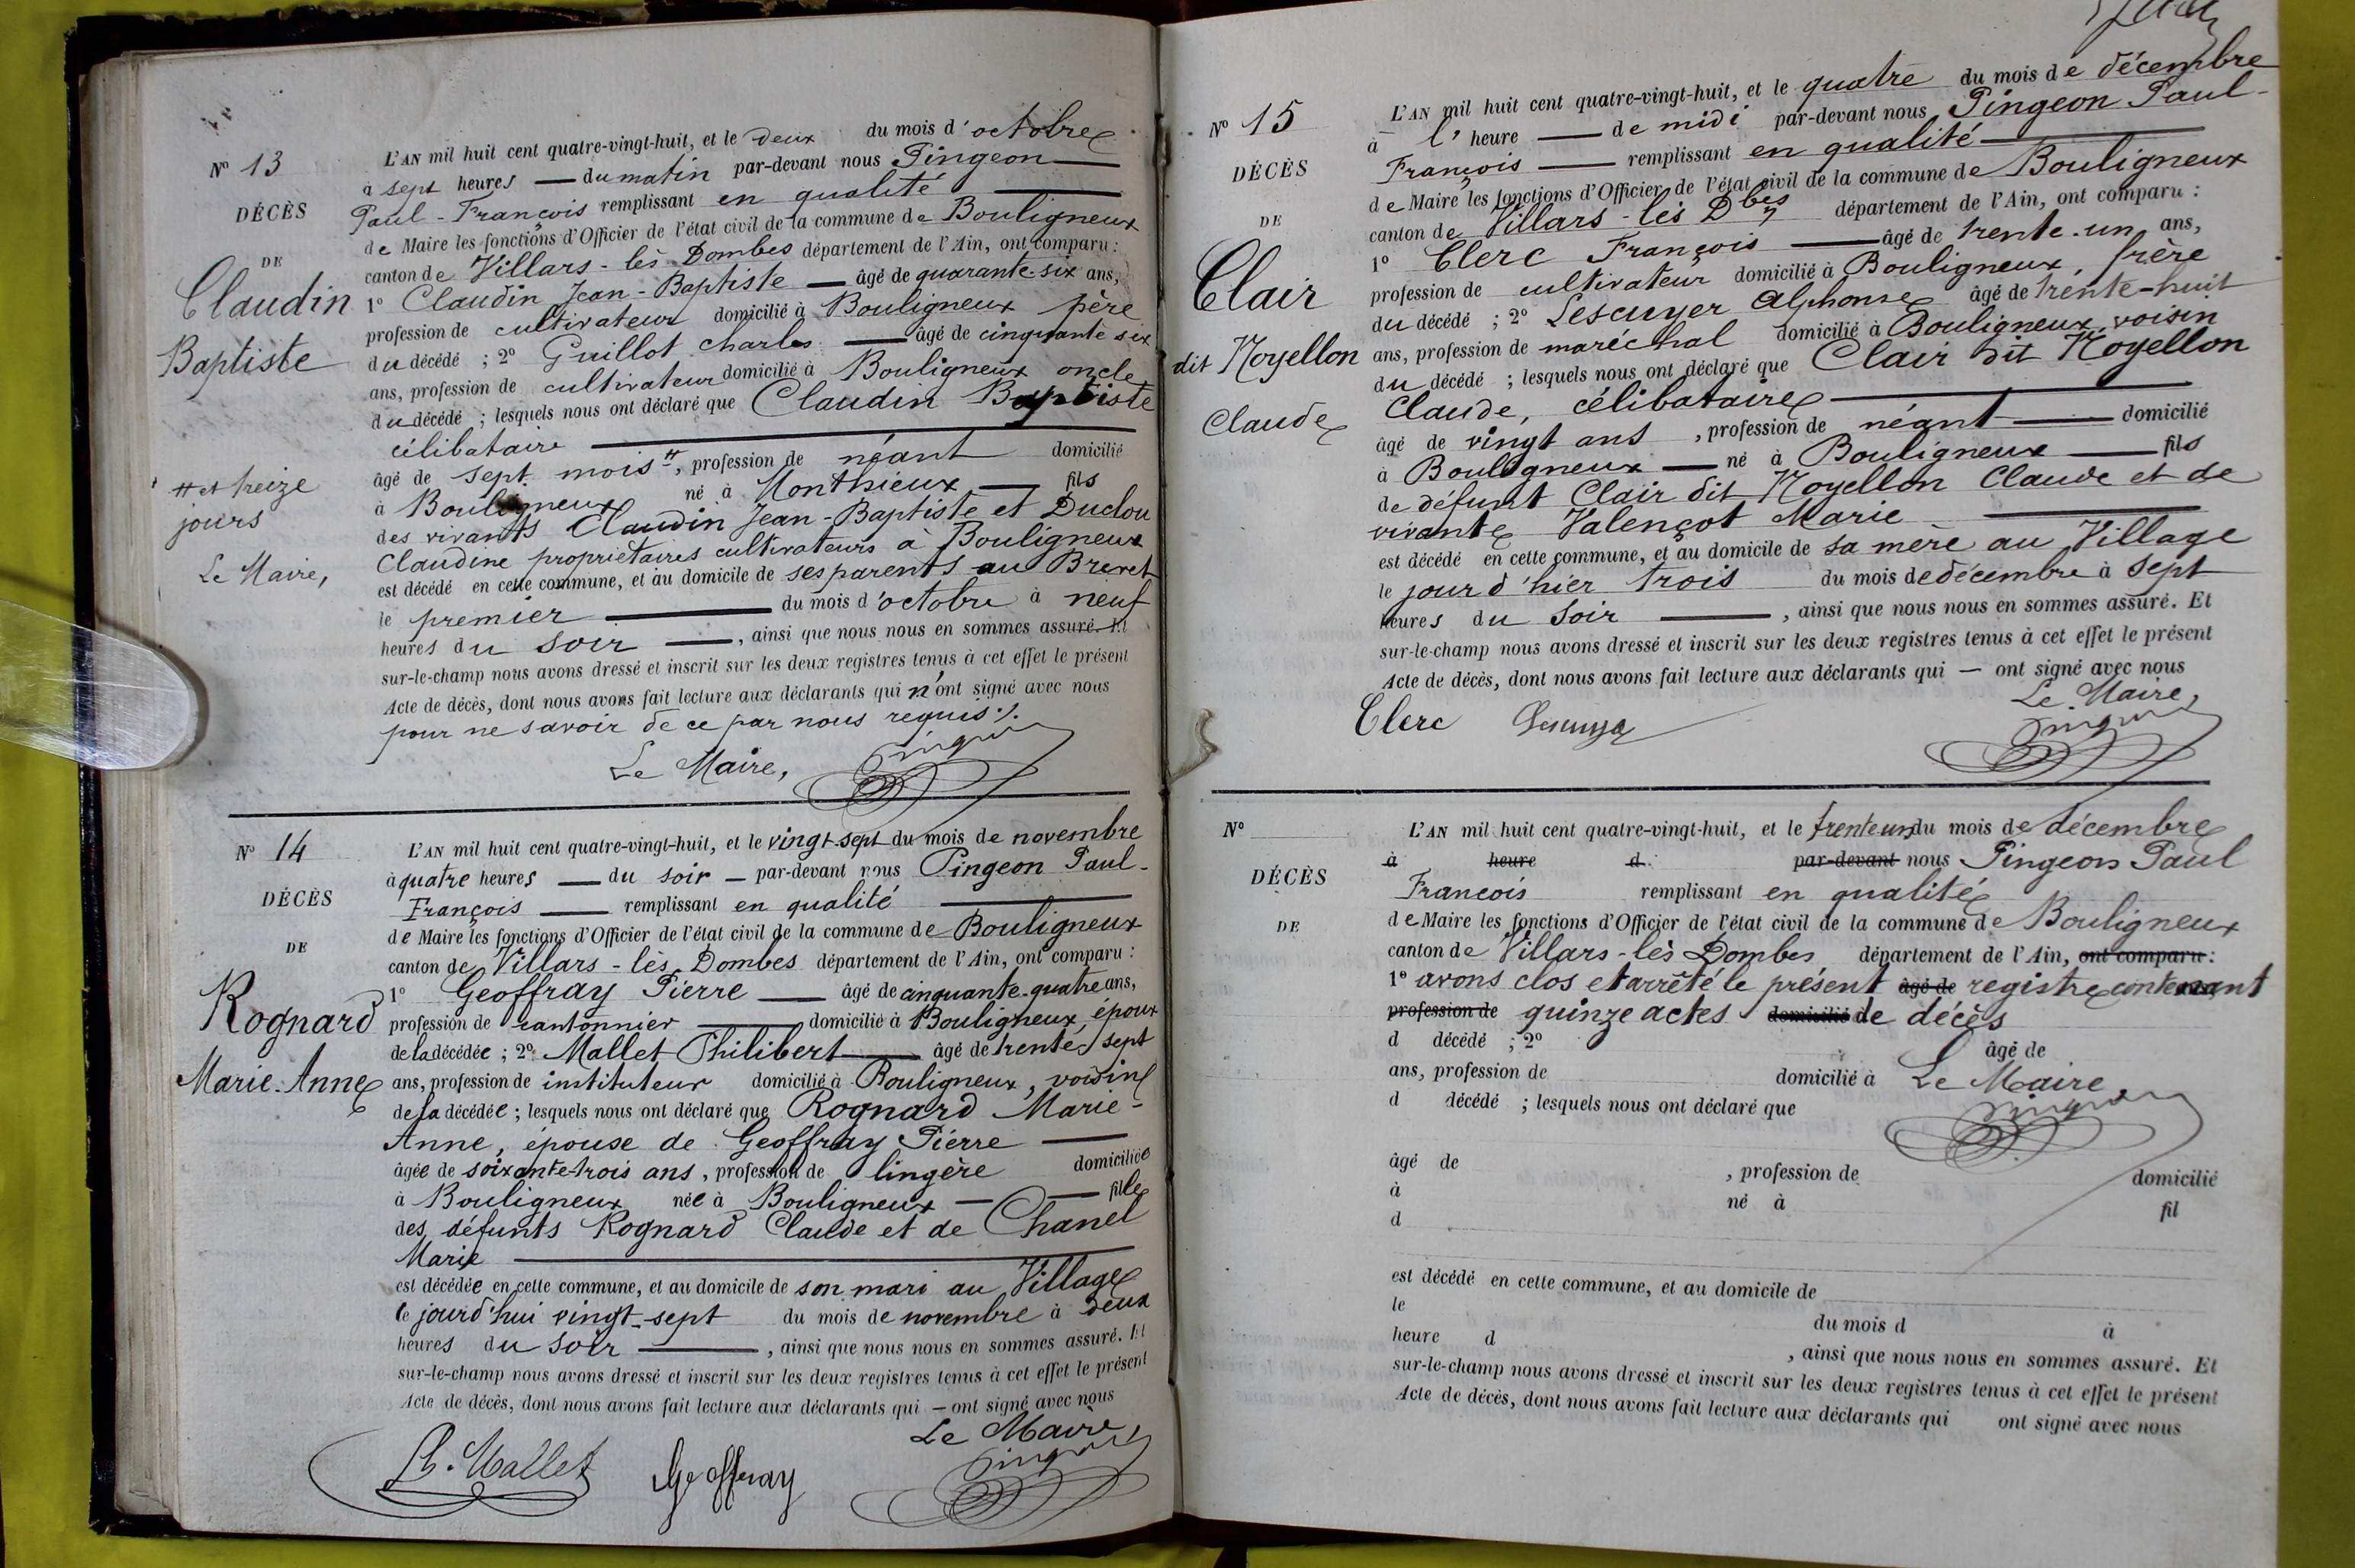 N° 13
DÉCÈS
DE
Claudin
Baptiste
# et treize
jours
Le Maire,
L'AN mil huit cent quatre-vingt-huit, et le deux du mois d'octobre
à sept heures — du matin par-devant nous Pingeon —
Paul-François remplissant en qualité —
de Maire les fonctions d'Officier de l'état civil de la commune de Bouligneux
canton de Villars-lès-Dombes département de l'Ain, ont comparu :
1° Claudin Jean-Baptiste — âgé de quarante-six ans,
profession de cultivateur domicilié à Bouligneux père
du décédé ; 2° Guillot Charles — âgé de cinquante six
ans, profession de cultivateur domicilié à Bouligneux oncle
du décédé ; lesquels nous ont déclaré que Claudin Baptiste
célibataire —
âgé de sept mois #, profession de néant domicilié
à Bouligneux né à Monthieux — fils
des vivants Claudin Jean-Baptiste et Duclou
Claudine propriétaires cultivateurs à Bouligneux
est décédé en cette commune, et au domicile de ses parents au Brevet
le premier — du mois d'octobre à neuf
heures du soir —, ainsi que nous nous en sommes assuré. Et
sur-le-champ nous avons dressé et inscrit sur les deux registres tenus à cet effet le présent
Acte de décès, dont nous avons fait lecture aux déclarants qui n'ont signé avec nous
pour ne savoir de ce par nous requis ./.
Le Maire,
Pingeon
N° 14
DÉCÈS
DE
Rognard
Marie-Anne
L'AN mil huit cent quatre-vingt-huit, et le vingt-sept du mois de novembre
à quatre heures — du soir — par-devant nous Pingeon Paul-
François — remplissant en qualité —
de Maire les fonctions d'Officier de l'état civil de la commune de Bouligneux
canton de Villars-lès-Dombes département de l'Ain, ont comparu :
1° Geoffray Pierre — âgé de cinquante-quatre ans,
profession de cantonnier — domicilié à Bouligneux, époux
de la décédée ; 2° Mallet Philibert — âgé de trente sept
ans, profession de instituteur domicilié à Bouligneux, voisin
de la décédée ; lesquels nous ont déclaré que Rognard Marie-
Anne, épouse de Geoffray Pierre —
âgée de soixante-trois ans, profession de lingère domiciliée
à Bouligneux née à Bouligneux — fille
des défunts Rognard Claude et de Chanel
Marie —
est décédée en cette commune, et au domicile de son mari au Village
le jourd'hui vingt-sept du mois de novembre à deux
heures du soir —, ainsi que nous nous en sommes assuré. Et
sur-le-champ nous avons dressé et inscrit sur les deux registres tenus à cet effet le présent
Acte de décès, dont nous avons fait lecture aux déclarants qui — ont signé avec nous
Le Maire,
Ph. Mallet Geoffray Pingeon
N° 15
DÉCÈS
DE
Clair
dit Noyellon
Claude
L'AN mil huit cent quatre-vingt-huit, et le quatre du mois de décembre
à l'heure — de midi par-devant nous Pingeon Paul-
François — remplissant en qualité —
de Maire les fonctions d'Officier de l'état civil de la commune de Bouligneux
canton de Villars-lès Dbes département de l'Ain, ont comparu :
1° Clerc François — âgé de trente-un ans,
profession de cultivateur domicilié à Bouligneux, frère
du décédé ; 2° Lescuyer Alphonse âgé de trente-huit
ans, profession de maréchal domicilié à Bouligneux, voisin
du décédé ; lesquels nous ont déclaré que Clair dit Noyellon
Claude, célibataire —
âgé de vingt ans, profession de néant — domicilié
à Bouligneux — né à Bouligneux — fils
de défunt Clair dit Noyellon Claude et de
vivante Valençot Marie —
est décédé en cette commune, et au domicile de sa mère au Village
le jour d'hier trois du mois de décembre à sept
heures du soir —, ainsi que nous nous en sommes assuré. Et
sur-le-champ nous avons dressé et inscrit sur les deux registres tenus à cet effet le présent
Acte de décès, dont nous avons fait lecture aux déclarants qui — ont signé avec nous
Le Maire,
Clerc Lescuyer Pingeon
N°
DÉCÈS
DE
L'AN mil huit cent quatre-vingt-huit, et le trente un du mois de décembre
à heure d par-devant nous Pingeon Paul
François remplissant en qualité
de Maire les fonctions d'Officier de l'état civil de la commune de Bouligneux
canton de Villars-lès-Dombes département de l'Ain, ont comparu :
1° avons clos et arrêté le présent âgé de registre contenant
profession de quinze actes domicilié de décès
d décédé ; 2° âgé de
ans, profession de domicilié à Le Maire,
d décédé ; lesquels nous ont déclaré que Pingeon
âgé de , profession de domicilié
à né à fil
d
est décédé en cette commune, et au domicile de
le du mois d à
heure d , ainsi que nous nous en sommes assuré. Et
sur-le-champ nous avons dressé et inscrit sur les deux registres tenus à cet effet le présent
Acte de décès, dont nous avons fait lecture aux déclarants qui ont signé avec nous